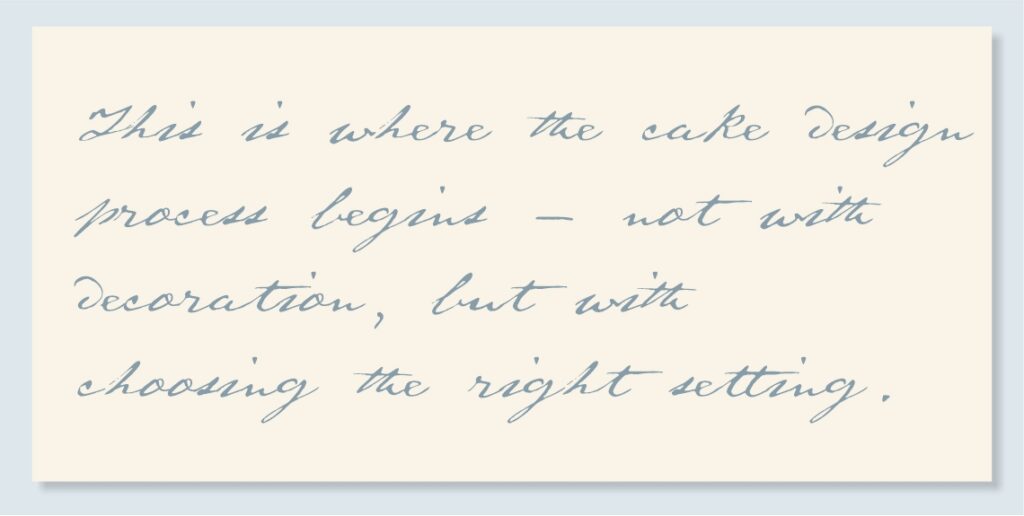 This is where the cake design
process begins – not with
decoration, but with
choosing the right setting.